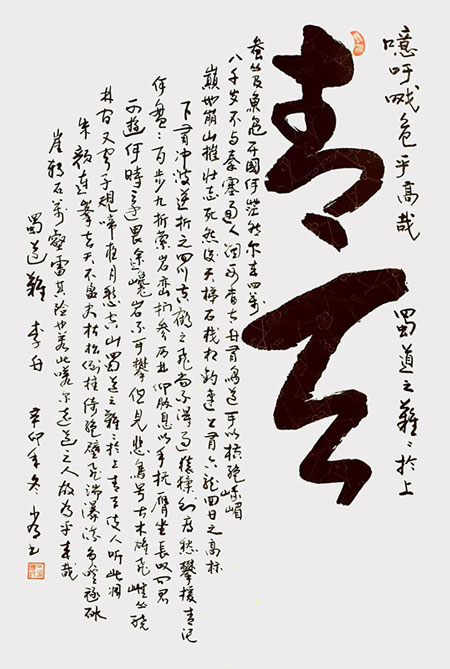 噫吁嚱危乎高哉 蜀道之難〻於上
青天
蚕丛及魚凫开國何茫然尔来四萬
八千岁不与秦塞通人烟西当太白有鸟道可以横绝峨嵋
巅地崩山摧壮士死然後天梯石栈相钩連上有六龍回日之高标
下有冲波逆折之回川黄鹤之飞尚不得过猿猱欲度愁攀援青泥
何盤〻百步九折萦岩峦扪参历井仰脅息以手抚膺坐长叹问君
西遊何時還畏途巉岩不可攀但見悲鸟号古木雄飞雌从绕
林间又闻子规啼夜月愁空山蜀道之難〻於上青天使人听此凋
朱颜連峯去天不盈尺枯松倒挂倚绝壁飞湍瀑流争喧豗砯
崖转石萬壑雷其险也若此嗟尔远道之人胡为乎来哉
蜀道難 李白 辛卯年冬